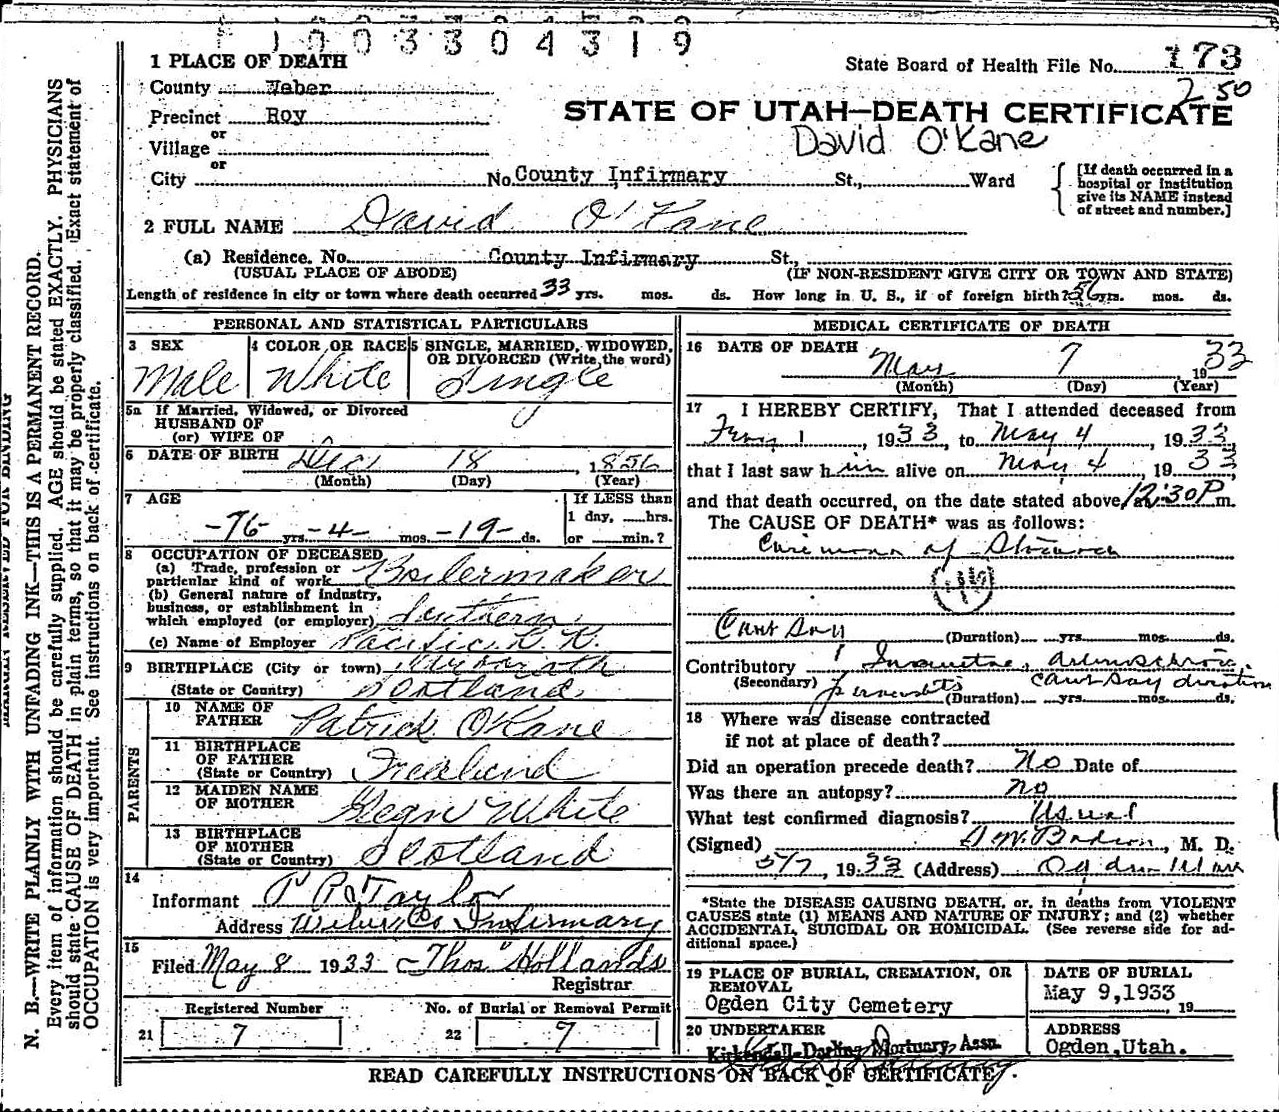 1003304319
1 PLACE OF DEATH
State Board of Health File No. 173
County Weber
2 50
Precinct Roy
STATE OF UTAH—DEATH CERTIFICATE
or
David O'Kane
Village
or
City No. County Infirmary St., Ward
[If death occurred in a hospital or institution give its NAME instead of street and number.]
2 FULL NAME David O'Kane
(a) Residence. No. County Infirmary St.,
(USUAL PLACE OF ABODE) (IF NON-RESIDENT GIVE CITY OR TOWN AND STATE)
Length of residence in city or town where death occurred 33 yrs. mos. ds. How long in U. S., if of foreign birth? 56 yrs. mos. ds.
PERSONAL AND STATISTICAL PARTICULARS
3 SEX
Male
4 COLOR OR RACE
White
5 SINGLE, MARRIED, WIDOWED,
OR DIVORCED (Write the word)
Single
5a If Married, Widowed, or Divorced
HUSBAND OF
(or) WIFE OF
6 DATE OF BIRTH Dec 18, 1856
(Month) (Day) (Year)
7 AGE
If LESS than
1 day, hrs.
-76- yrs. -4- mos. -19- ds. or min.?
8 OCCUPATION OF DECEASED
(a) Trade, profession or
particular kind of work Boilermaker
(b) General nature of industry,
business, or establishment in
which employed (or employer) Southern
(c) Name of Employer Pacific R.R.
9 BIRTHPLACE (City or town)
(State or Country) Scotland
PARENTS
10 NAME OF
FATHER Patrick O'Kane
11 BIRTHPLACE
OF FATHER
(State or Country)
12 MAIDEN NAME
OF MOTHER White
13 BIRTHPLACE
OF MOTHER
(State or Country) Scotland
14
Informant P R Taylor
Address Weber Co Infirmary
15
Filed May 8 1933 Thos Hollands
Registrar
Registered Number
21 7
No. of Burial or Removal Permit
22 7
MEDICAL CERTIFICATE OF DEATH
16 DATE OF DEATH
May 7 1933
(Month) (Day) (Year)
17 I HEREBY CERTIFY, That I attended deceased from
1, 1933, to May 4, 1933,
that I last saw him alive on May 4, 1933
and that death occurred, on the date stated above, at 12:30 P m.
The CAUSE OF DEATH* was as follows:
of Stomach
Cant Say
(Duration) yrs. mos. ds.
Contributory
(Secondary) Cant Say duration
(Duration) yrs. mos. ds.
18 Where was disease contracted
if not at place of death?
Did an operation precede death? No Date of
Was there an autopsy? no
What test confirmed diagnosis? Usual
(Signed) M. D.
5/7, 1933 (Address) Ogden Utah
*State the DISEASE CAUSING DEATH, or, in deaths from VIOLENT
CAUSES state (1) MEANS AND NATURE OF INJURY; and (2) whether
ACCIDENTAL, SUICIDAL OR HOMICIDAL. (See reverse side for ad-
ditional space.)
19 PLACE OF BURIAL, CREMATION, OR
REMOVAL
Ogden City Cemetery
DATE OF BURIAL
May 9,1933, 19
20 UNDERTAKER
Kirkendall-Darling Mortuary Assn.
ADDRESS
Ogden, Utah.
READ CAREFULLY INSTRUCTIONS ON BACK OF CERTIFICATE.
MARGIN RESERVED FOR BINDING
N. B.—WRITE PLAINLY WITH UNFADING INK—THIS IS A PERMANENT RECORD.
Every item of information should be carefully supplied. AGE should be stated EXACTLY. PHYSICIANS
should state CAUSE OF DEATH in plain terms, so that it may be properly classified. Exact statement of
OCCUPATION is very important. See instructions on back of certificate.